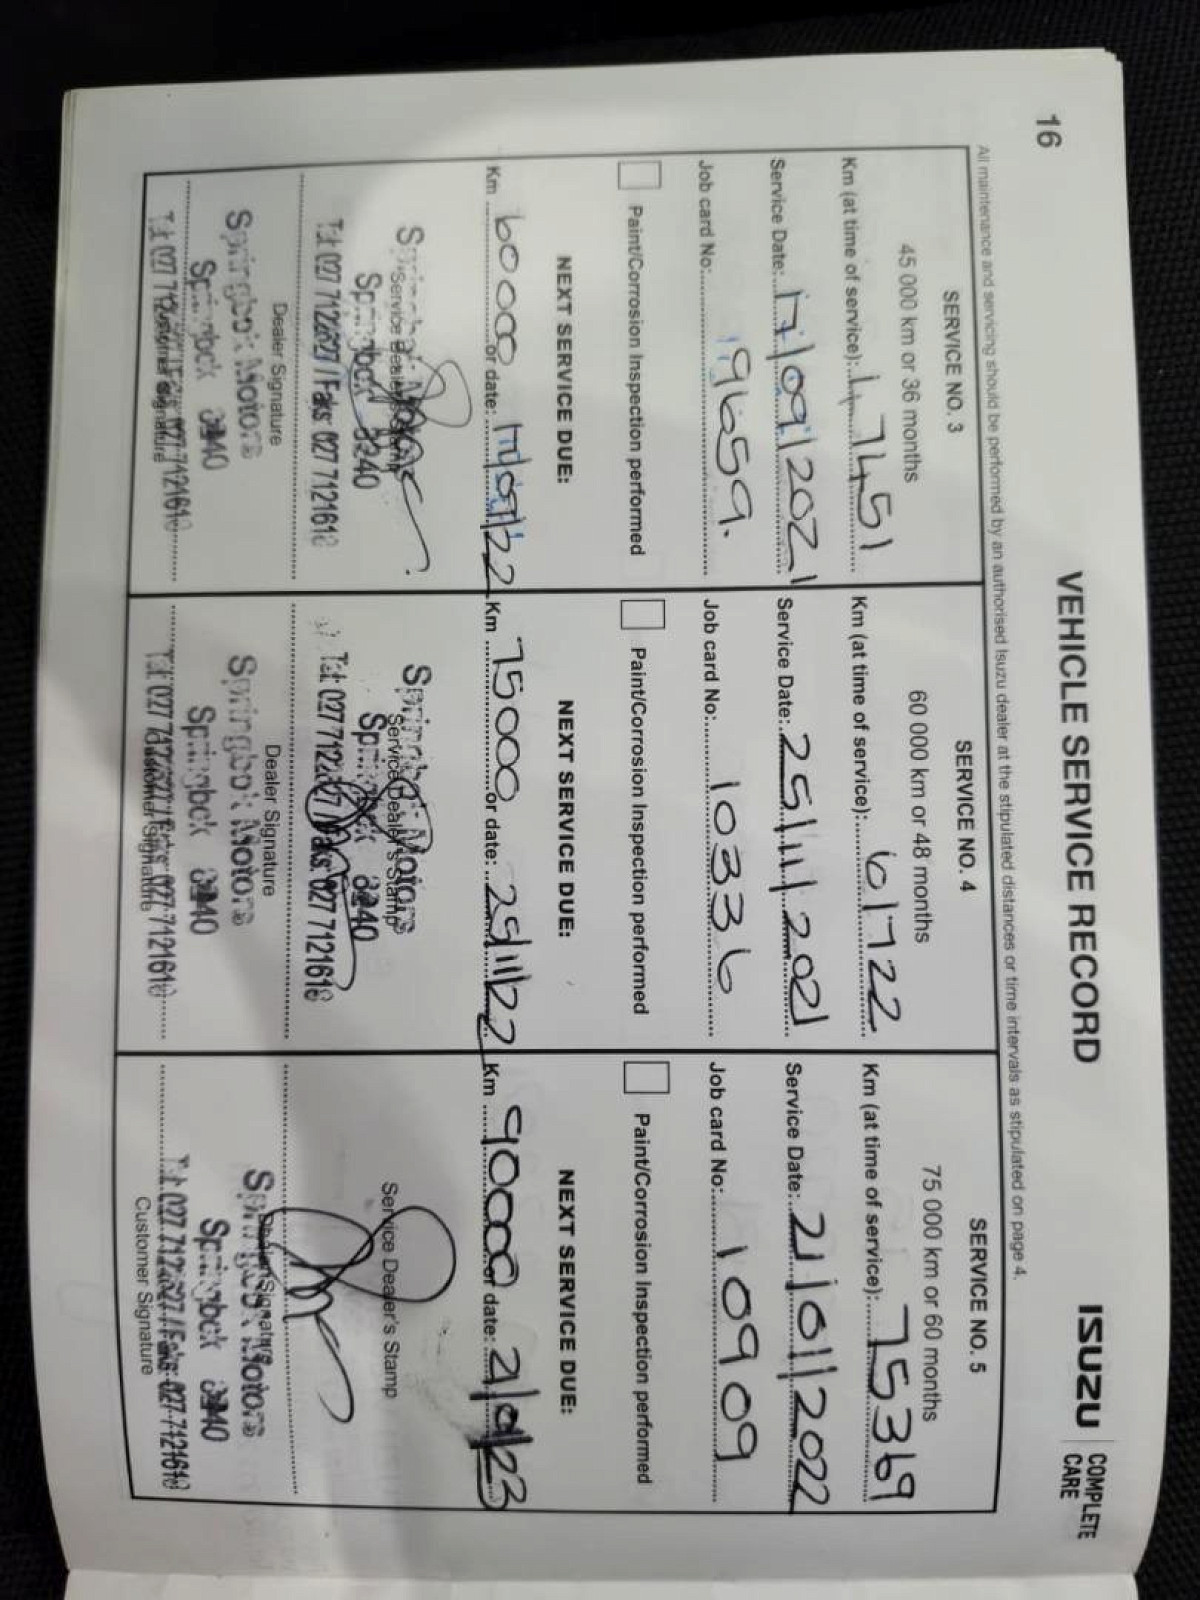 16
VEHICLE SERVICE RECORD
ISUZU COMPLETE CARE
All maintenance and servicing should be performed by an authorised Isuzu dealer at the stipulated distances or time intervals as stipulated on page 4.
SERVICE NO. 3
45 000 km or 36 months
Km (at time of service): 47451
Service Date: 17/09/2021
Job card No: 9659.
Paint/Corrosion Inspection performed
NEXT SERVICE DUE:
Km 60000 or date: 17/09/22
Service Dealer's Stamp
Springbok 8240
Tel: 027 7121627 / Faks: 027 7121610
Dealer Signature
Springbok Motors
Springbok 8240
Customer Signature
SERVICE NO. 4
60 000 km or 48 months
Km (at time of service): 61722
Service Date: 25/11/2021
Job card No: 10336
Paint/Corrosion Inspection performed
NEXT SERVICE DUE:
Km 75000 or date: 25/11/22
Springbok Motors
Service Dealer's Stamp
Springbok 8240
Dealer Signature
Springbok Motors
Springbok 8240
Customer Signature
SERVICE NO. 5
75 000 km or 60 months
Km (at time of service): 75369
Service Date: 21/01/2022
Job card No: 10909
Paint/Corrosion Inspection performed
NEXT SERVICE DUE:
Km 90000 or date: 21/01/23
Service Dealer's Stamp
Dealer Signature
Springbok Motors
Springbok 8240
Customer Signature